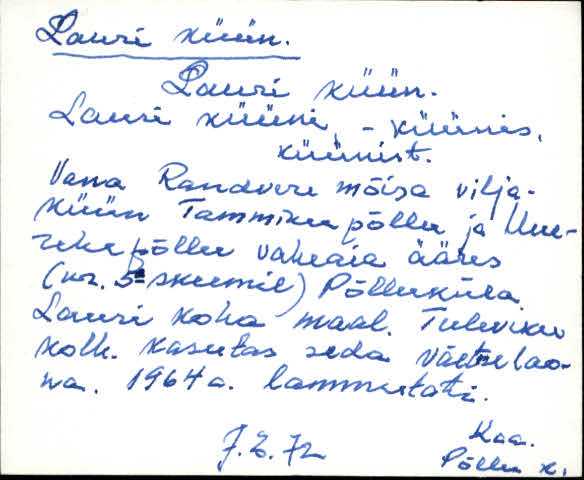 Lauri küün.
Lauri küün.
Lauri küüni, - küünis,
küünist.
Vana Randvere mõisa vilja-
küün Tammiku põllu ja Uue-
põllu vaheaia ääres
(vt. 5 skeemil) Põlluküla
Lauri koha maal. Tuleviku
kolh. kasutas seda väetiselao-
na. 1964 a. lammutati.
J. E. 72
Kaa.
Põllu k.